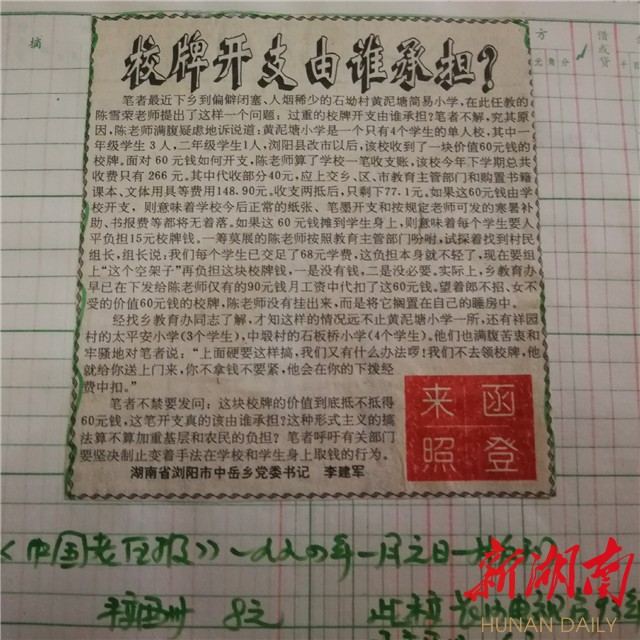 摘
方
借或贷
元角分
千
校牌开支由谁承担？
笔者最近下乡到偏僻闭塞、人烟稀少的石坳村黄泥塘简易小学，在此任教的
陈雪荣老师提出了这样一个问题：过重的校牌开支由谁承担？笔者不解，究其原
因，陈老师满腹疑虑地诉说道：黄泥塘小学是一个只有4个学生的单人校，其中一
年级学生3人，二年级学生1人，浏阳县改市以后，该校收到了一块价值60元钱的
校牌。面对60元钱如何开支，陈老师算了学校一笔收支账，该校今年下学期总共
收费只有266元。其中代收部分40元，应上交乡、区、市教育主管部门和购置书籍
课本、文体用具等费用148.90元。收支两抵后，只剩下77.1元。如果这60元钱由学
校开支，则意味着学校今后正常的纸张、笔墨开支和按规定老师可发的寒暑补
助、书报费等都将无着落。如果这60元钱摊到学生身上，则意味着每个学生要人
平负担15元校牌钱。一筹莫展的陈老师按照教育主管部门吩咐，试探着找到村民
组长，组长说：我们每个学生已交足了68元学费，这负担本身就不轻了，现在要组
上“这个空架子”再负担这块校牌钱，一是没有钱，二是没必要。实际上，乡教育办
早已在下发给陈老师仅有的90元钱月工资中代扣了这60元钱。望着郎不招、女不
受的价值60元钱的校牌，陈老师没有挂出来，而是将它搁置在自己的睡房中。
经找乡教育办同志了解，才知这样的情况远不止黄泥塘小学一所，还有祥园
村的太平安小学(3个学生)，中塅村的石板桥小学(4个学生)。他们也满腹苦衷和
牢骚地对笔者说：“上面硬要这样搞，我们又有什么办法啰！我们不去领校牌，他
就给你送上门来，你不拿钱不要紧，他会在你的下拨经
费中扣。”
笔者不禁要发问：这块校牌的价值到底抵不抵得
60元钱，这笔开支真的该由谁承担？这种形式主义的搞
法算不算加重基层和农民的负担？笔者呼吁有关部门
要坚决制止变着手法在学校和学生身上取钱的行为。
湖南省浏阳市中岳乡党委书记 李建军
来函
照登
《中国老区报》一九九四年一月
8元
新湖南
HUNAN DAILY